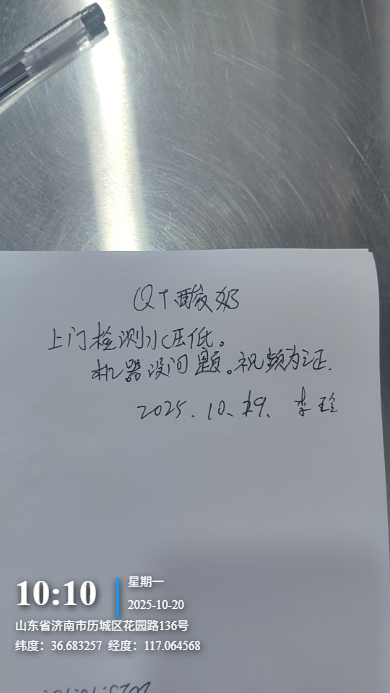 QT酸奶
上门检测水压低。
机器没问题。视频为证.
2025.10.19. 李
10:10
星期一
2025-10-20
山东省济南市历城区花园路136号
纬度：36.683257 经度：117.064568